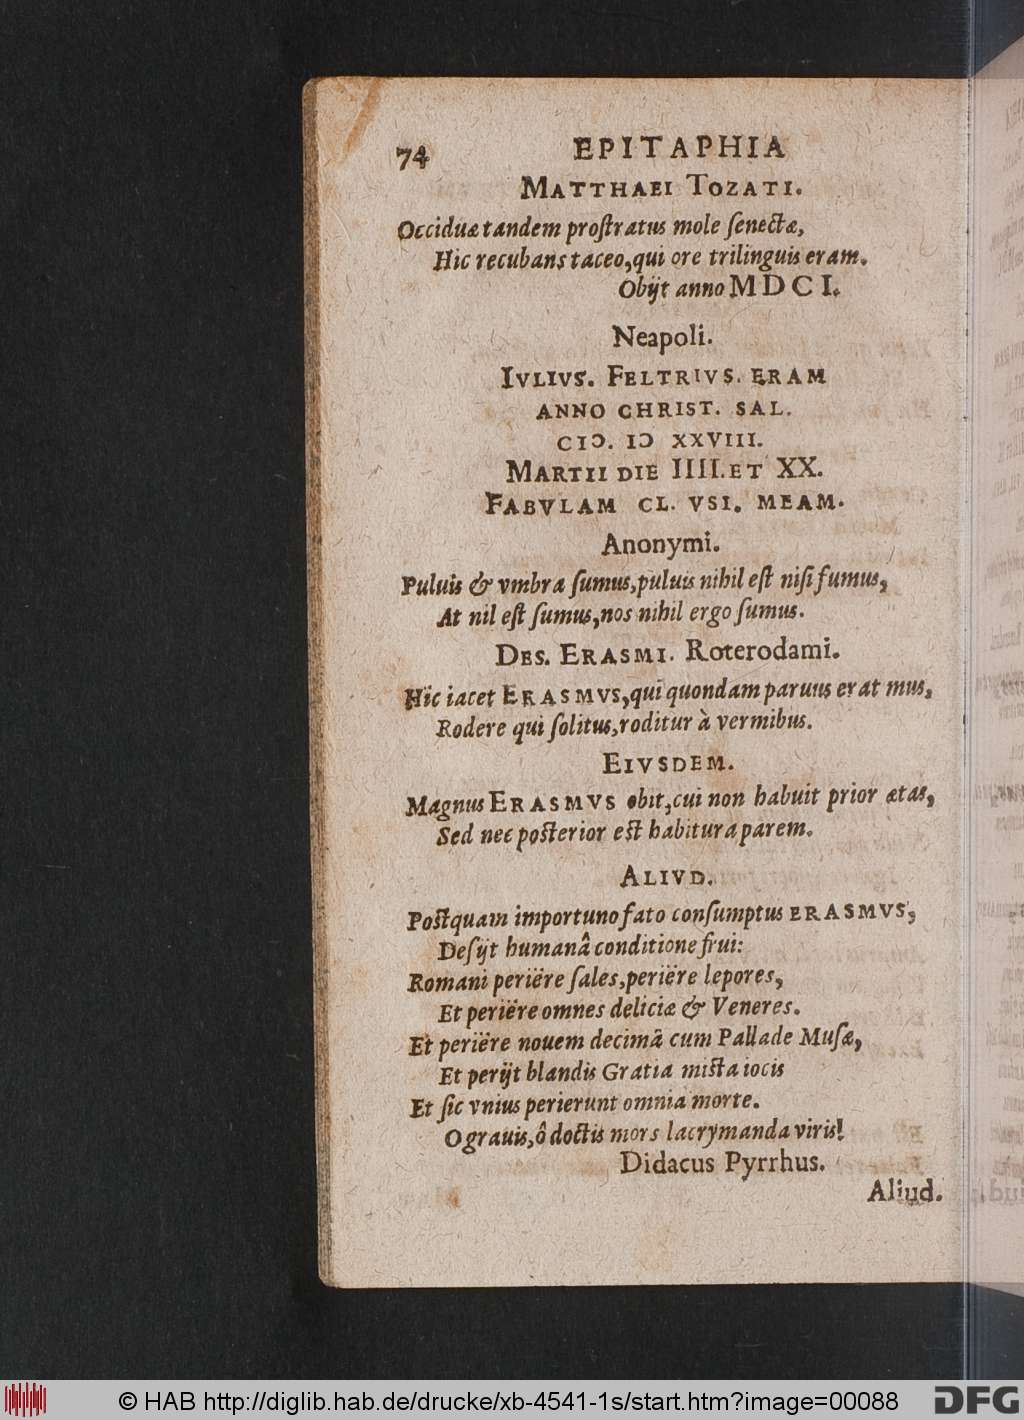 74 EPITAPHIA
MATTHAEI TOZATI.
Occiduæ tandem proſtratus mole ſenectæ,
Hic recubans taceo, qui ore trilinguis eram.
Obijt anno MDCI.
Neapoli.
IVLIVS. FELTRIVS. ERAM
ANNO CHRIST. SAL.
CIƆ. IƆ XXVIII.
MARTII DIE IIII. ET XX.
FABVLAM CL. VSI. MEAM.
Anonymi.
Puluis & vmbra ſumus, puluis nihil eſt niſi fumus,
At nil eſt fumus, nos nihil ergo ſumus.
DES. ERASMI. Roterodami.
Hic iacet ERASMVS, qui quondam paruus erat mus,
Rodere qui ſolitus, roditur à vermibus.
EIVSDEM.
Magnus ERASMVS obit, cui non habuit prior ætas,
Sed nec poſterior eſt habitura parem.
ALIVD.
Poſtquam importuno fato conſumptus ERASMVS,
Deſijt humanâ conditione frui:
Romani periëre ſales, periëre lepores,
Et periëre omnes deliciæ & Veneres.
Et periëre nouem decimâ cum Pallade Muſæ,
Et perijt blandis Gratia miſta iocis
Et ſic vnius perierunt omnia morte.
O grauis, ô doctis mors lacrymanda viris!
Didacus Pyrrhus.
Aliud.
© HAB http://diglib.hab.de/drucke/xb-4541-1s/start.htm?image=00088
DFG